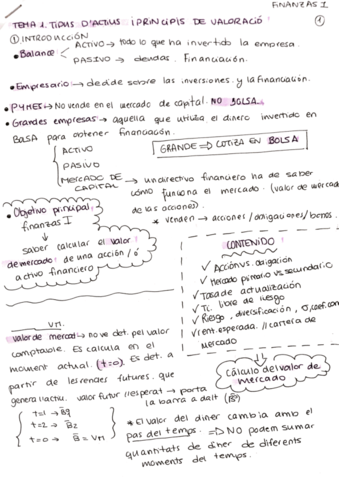 FINANZAS I
①
TEMA 1. TIPUS D'ACTIUS I PRINCIPIS DE VALORACIÓ
① INTRODUCCIÓN
• Balance
ACTIVO → todo lo que ha invertido la empresa.
PASIVO → deudas. Financiación.
• Empresario → decide sobre las inversiones y la financiación.
• PYMES → No vende en el mercado de capital. NO BOLSA.
• Grandes empresas → aquella que utiliza el dinero invertido en
BOLSA para obtener financiación.
ACTIVO
PASIVO
MERCADO DE CAPITAL
GRANDE ⇒ COTIZA EN BOLSA
→ un directivo financiero ha de saber
cómo funciona el mercado. (valor de mercado
de las acciones).
* vender → acciones / obligaciones / bonos.
• Objetivo principal
finanzas I
saber calcular el valor
de mercado de una acción / ó
activo financiero
CONTENIDO
✓ Acción vs. obligación
✓ Mercado primario vs secundario
✓ Tasa de actualización
✓ T.i. libre de riesgo
✓ Riesgo, diversificación, σ, coef. corr
✓ rent. esperada // cartera de
mercado
Cálculo del valor de
mercado
VM.
valor de mercat → no ve det. pel valor
comptable. Es calcula en el
moment actual. (t=0). Es det. a
partir de les rendes futures que
genera l'actiu. valor futur (esperat) → porta
la barra a dalt (B̄)
t=1 → B̄1
t=2 → B̄2
t=0 → B = VM
* El valor del diner canvia amb el
pas del temps. ⇒ NO podem sumar
quantitats de diner de diferents
moments del temps.